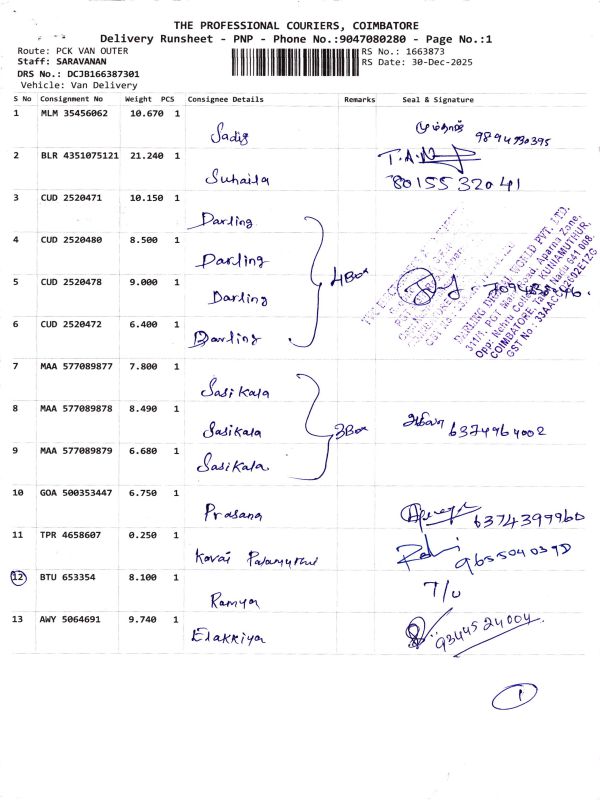 THE PROFESSIONAL COURIERS, COIMBATORE
Delivery Runsheet - PNP - Phone No.:9047080280 - Page No.:1
Route: PCK VAN OUTER RS No.: 1663873
Staff: SARAVANAN RS Date: 30-Dec-2025
DRS No.: DCJB166387301
Vehicle: Van Delivery
S No Consignment No Weight PCS Consignee Details Remarks Seal & Signature
1 MLM 35456062 10.670 1
Sadiq 9894930395
2 BLR 4351075121 21.240 1
Suhaila 8015532041
3 CUD 2520471 10.150 1
Darling
4 CUD 2520480 8.500 1
Darling 4 Box
5 CUD 2520478 9.000 1
Darling
6 CUD 2520472 6.400 1
Darling
DARLING DIGITAL WORLD PVT. LTD.
Opp. Nehru College, KUNIAMUTHUR,
COIMBATORE, Tamil Nadu 641 008.
7 MAA 577089877 7.800 1
Sasikala
8 MAA 577089878 8.490 1
Sasikala 3 Box 6374964002
9 MAA 577089879 6.680 1
Sasikala
10 GOA 500353447 6.750 1
Prasana 6374399960
11 TPR 4658607 0.250 1
Kovai Palamuthir
12 BTU 653354 8.100 1
Ramya T/U
13 AWY 5064691 9.740 1
Elakkiya 9344524004
1